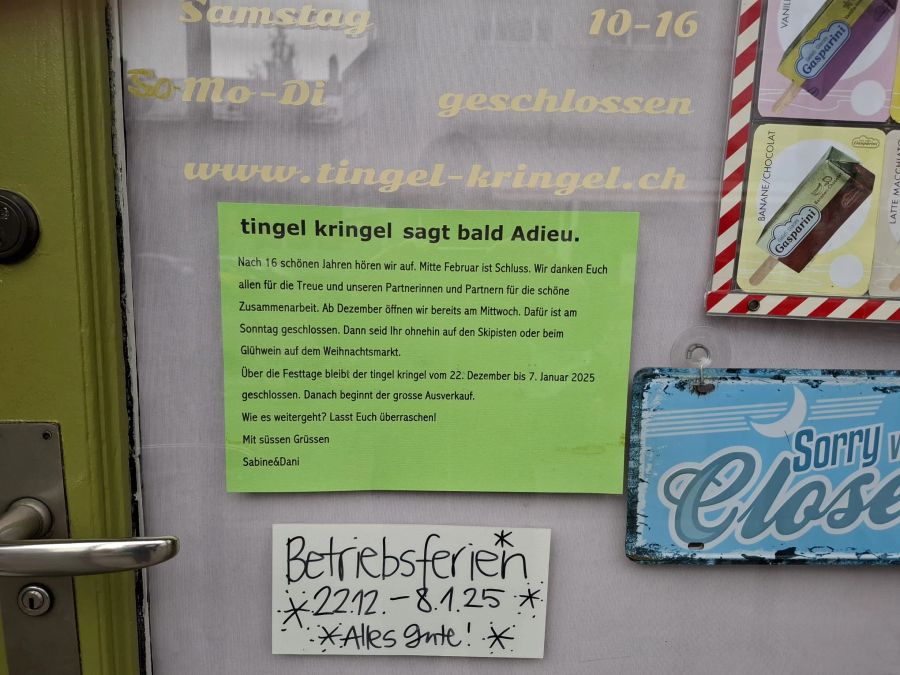 Samstag 10-16
So-Mo-Di geschlossen
www.tingel-kringel.ch
tingel kringel sagt bald Adieu.
Nach 16 schönen Jahren hören wir auf. Mitte Februar ist Schluss. Wir danken Euch
allen für die Treue und unseren Partnerinnen und Partnern für die schöne
Zusammenarbeit. Ab Dezember öffnen wir bereits am Mittwoch. Dafür ist am
Sonntag geschlossen. Dann seid Ihr ohnehin auf den Skipisten oder beim
Glühwein auf dem Weihnachtsmarkt.
Über die Festtage bleibt der tingel kringel vom 22. Dezember bis 7. Januar 2025
geschlossen. Danach beginnt der grosse Ausverkauf.
Wie es weitergeht? Lasst Euch überraschen!
Mit süssen Grüssen
Sabine&Dani
Betriebsferien
22.12. - 8.1.25
Alles Gute!
Gasparini
BANANE/CHOCOLAT
Gasparini
Gasparini
LATTE MACCHIATO
Sorry
Close